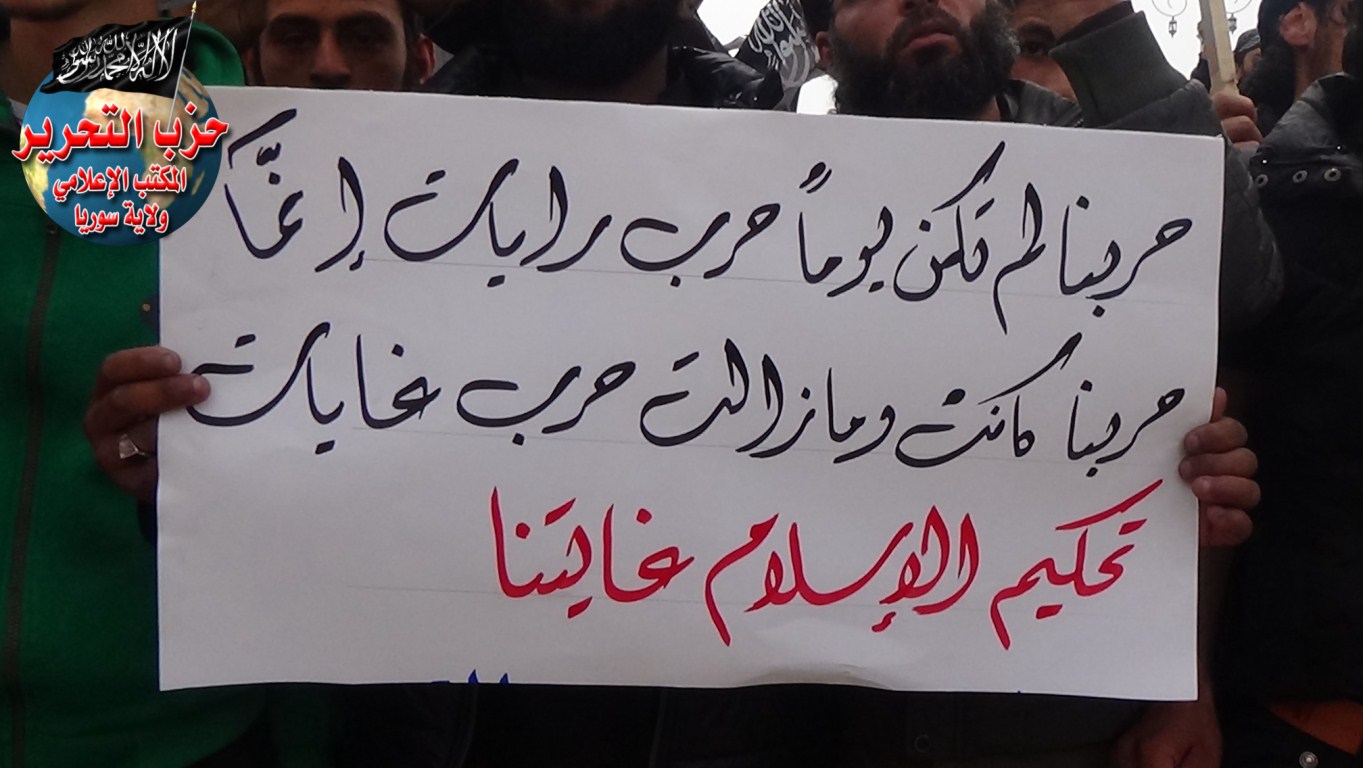 لا إله إلا الله محمد رسول الله
حزب التحرير
المكتب الإعلامي
ولاية سوريا
حربنا لم تكن يوماً حرب رايات إنمَّا
حربنا كانت وما زالت حرب غايات
تحكيم الإسلام غايتنا